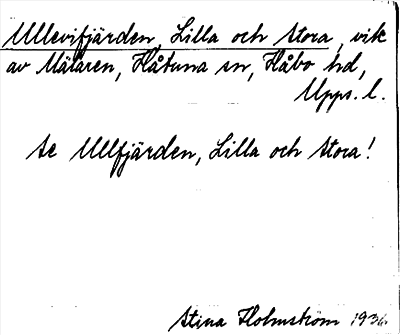 Ullevifjärden, Lilla och Stora, vik
av Mälaren, Håtuna sn, Håbo hd,
Upps. l.
Se Ullfjärden, Lilla och Stora!
Stina Holmström 1936